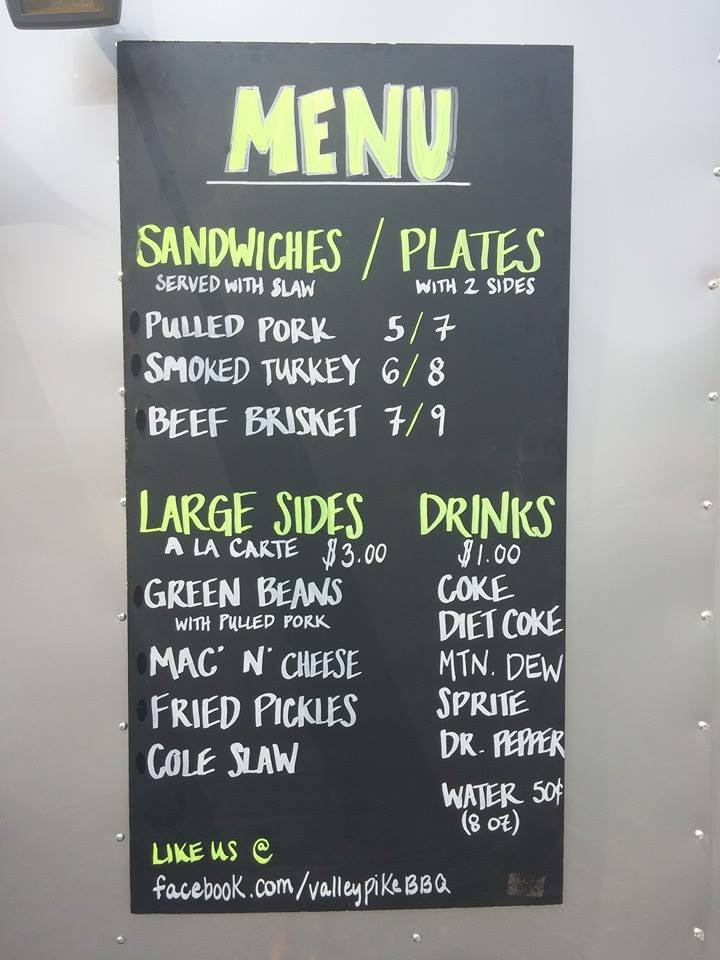 MENU
SANDWICHES / PLATES
SERVED WITH SLAW WITH 2 SIDES
PULLED PORK 5/7
SMOKED TURKEY 6/8
BEEF BRISKET 7/9
LARGE SIDES
A LA CARTE $3.00
GREEN BEANS
WITH PULLED PORK
MAC' N' CHEESE
FRIED PICKLES
COLE SLAW
DRINKS
$1.00
COKE
DIET COKE
MTN. DEW
SPRITE
DR. PEPPER
WATER 50¢
(8 OZ)
LIKE US @
facebook.com/valleypikeBBQ